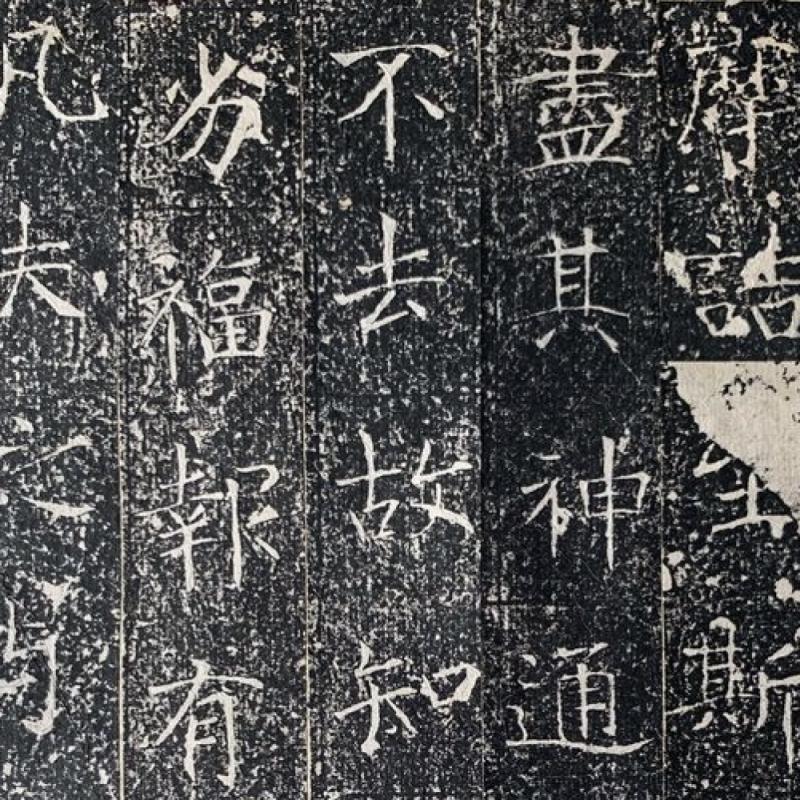 摩詰斯
盡其神通
不去故知
福報有
凡夫之